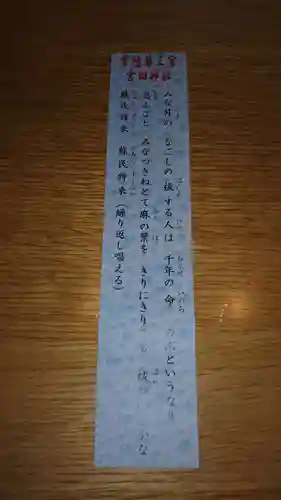 常陸第三宮
吉田神社
みな月の なごしの祓する人は 千年の命 のぶというなり
思ふこと みなつきねとて麻の葉を きりにきりても 祓 かな
蘇民将来 蘇民将来 (繰り返し唱える)